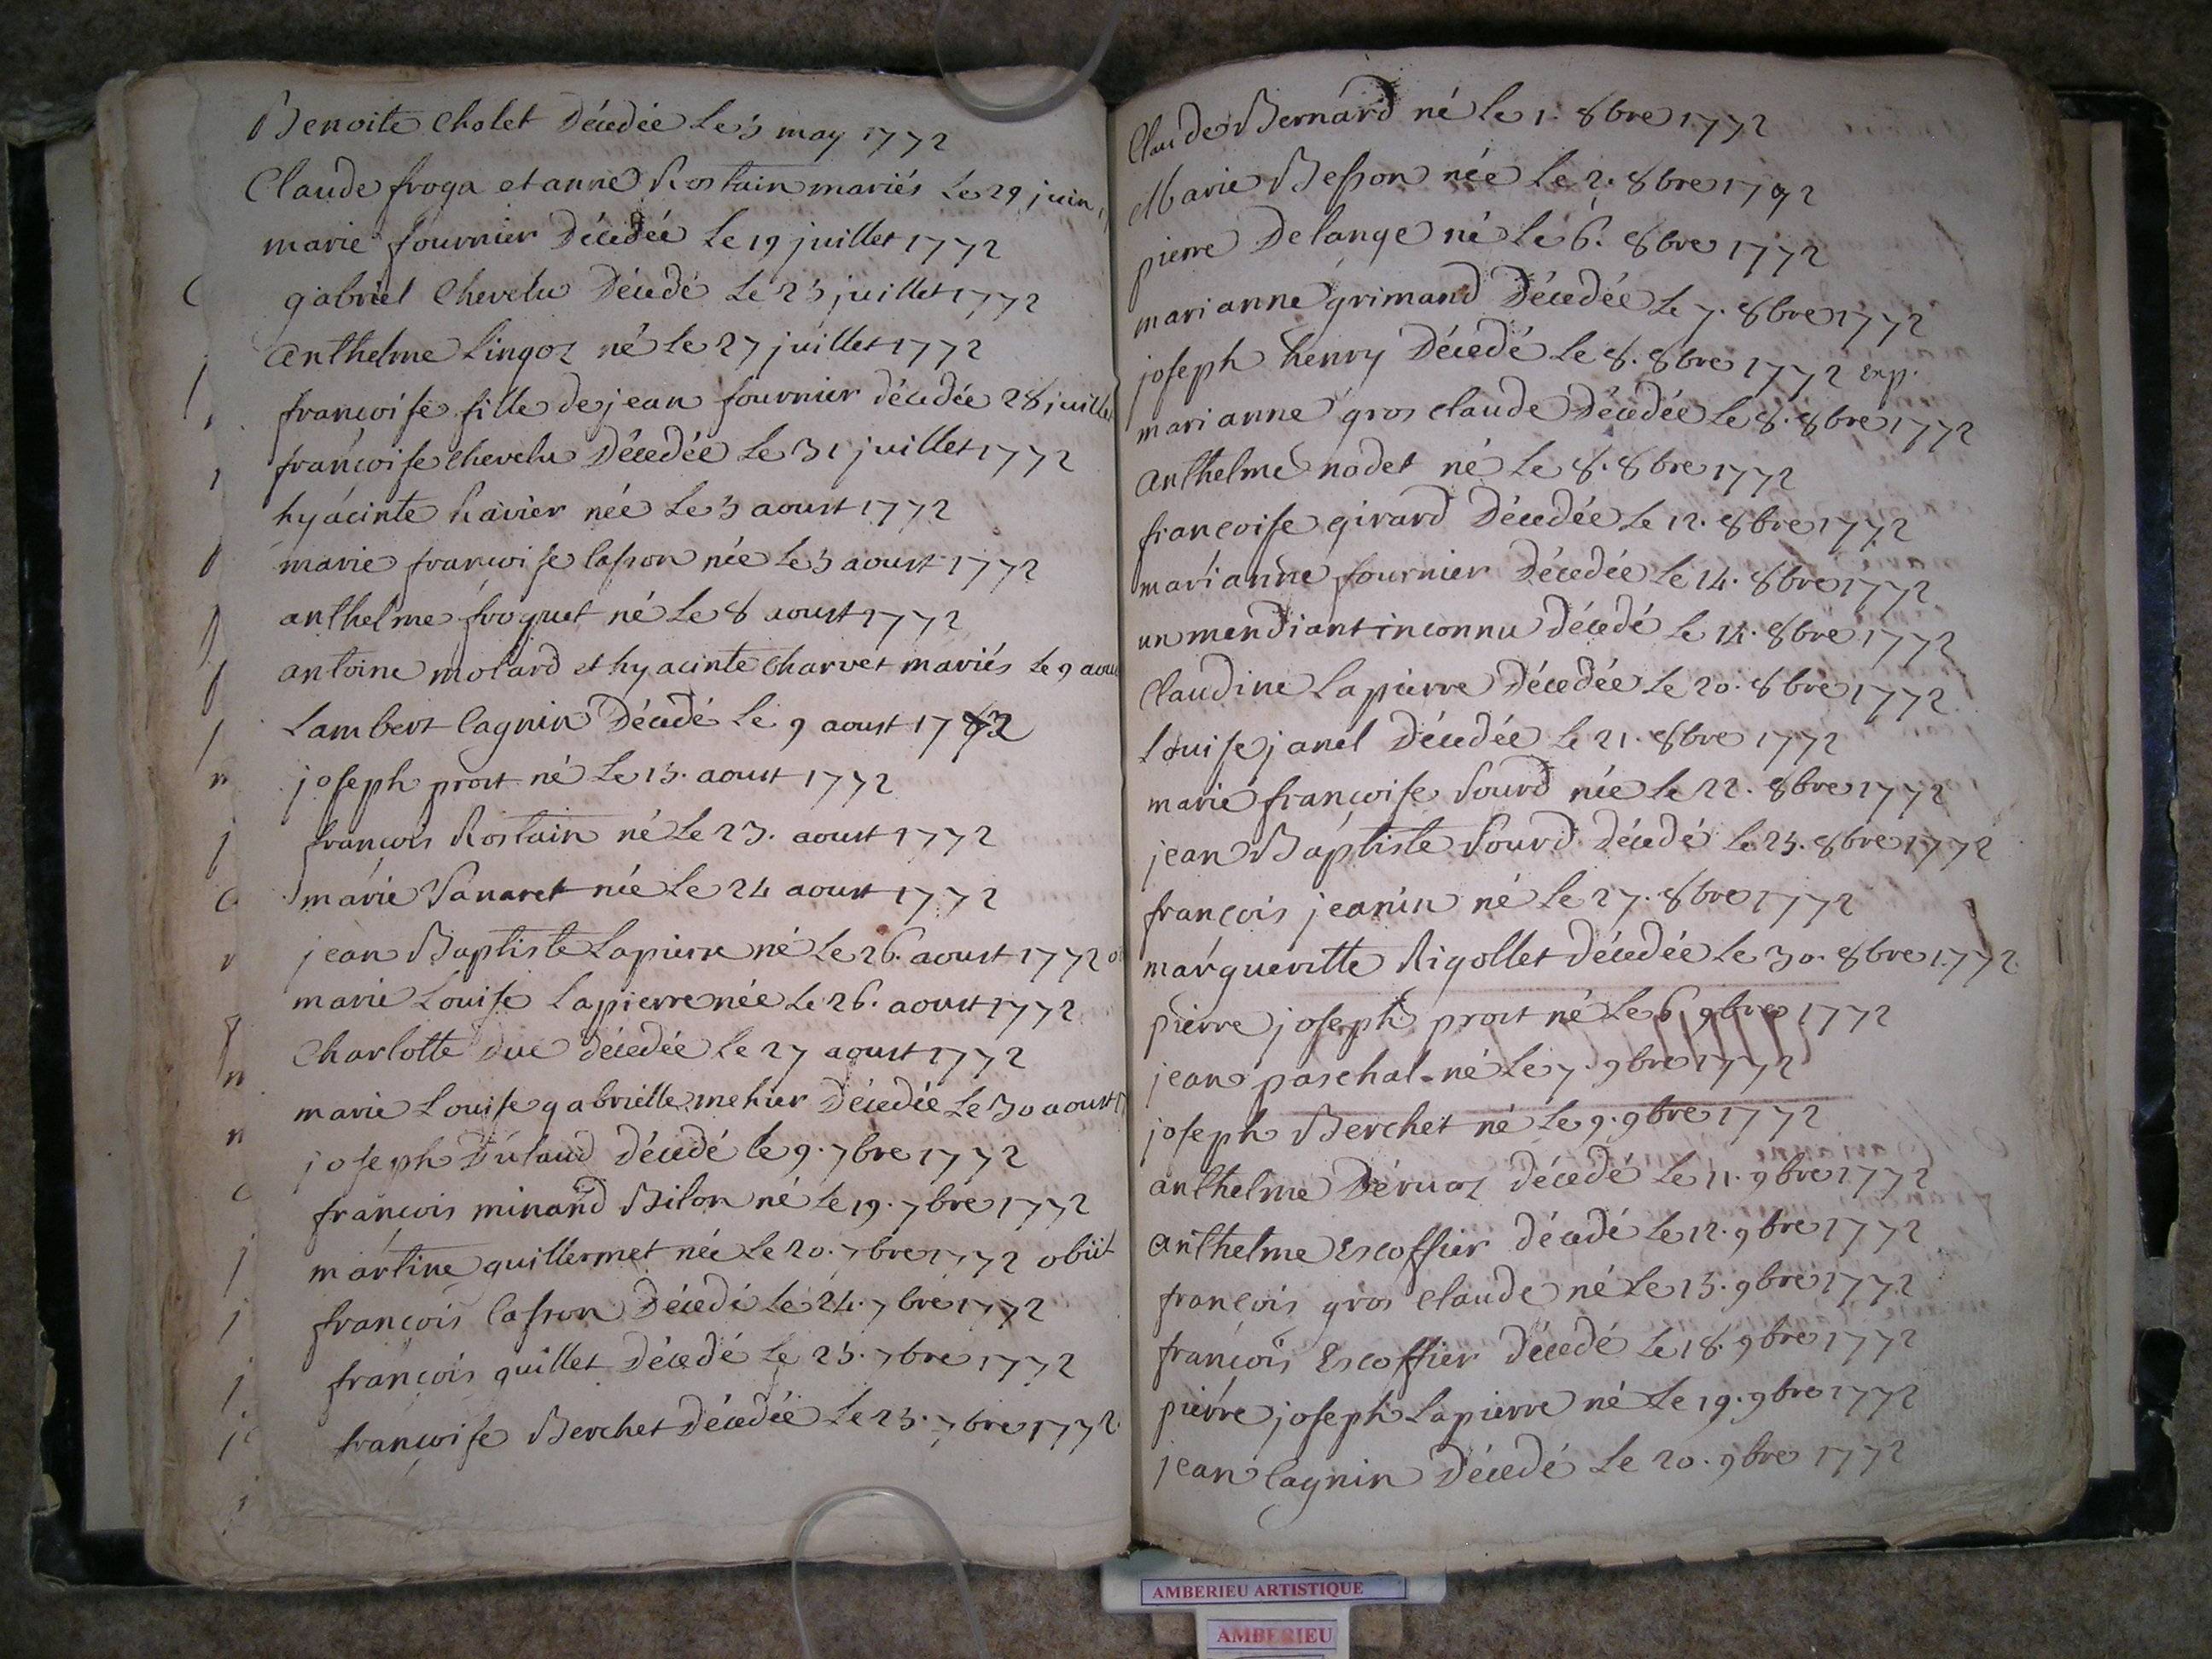 Benoite Cholet Décedée Le 3 may 1772
Claude froga et anne Rostain mariés Le 29 juin
marie fournier Décedée Le 19 juillet 1772
gabriel Chevelu Décedé Le 23 juillet 1772
Anthelme Lingoz né Le 27 juillet 1772
françoise fille de jean fournier décedée 28 juillet
françoise chevelu Décedée Le 31 juillet 1772
hyacinte Ravier née Le 3 aoust 1772
marie françoise Casson née Le 3 aoust 1772
anthelme froquet né Le 8 aoust 1772
antoine molard et hyacinte Charvet mariés Le 9 aoust
Lambert Cagnin Décedé Le 9 aoust 1772
joseph prost né Le 13. aoust 1772
françois Rostain né Le 23. aoust 1772
marie Vanaret née Le 24 aoust 1772
jean Baptiste Lapierre né Le 26. aoust 1772
marie Louise Lapierre née Le 26. aoust 1772
Charlotte Duc décedée Le 27 aoust 1772
marie Louise gabrielle mehier Décedée Le 30 aoust
joseph Dulaud Décedé le 9. 7bre 1772
françois minand Bilon né Le 19. 7bre 1772
martine guillermet née Le 20. 7bre 1772 obiit
françois Casson Décedé Le 24. 7bre 1772
françois guillet Décedé Le 25. 7bre 1772
françoise Berchet Décedée Le 25. 7bre 1772
Claude Bernard né Le 1. 8bre 1772
Marie Besson née Le 2. 8bre 1772
pierre Delange né Le 6. 8bre 1772
marianne grimand Décedée Le 7. 8bre 1772
joseph henry Décedé Le 8. 8bre 1772 exp.
marianne gros claude Décedée Le 8. 8bre 1772
Anthelme nodet né Le 8. 8bre 1772
françoise girard Décedée Le 12. 8bre 1772
marianne fournier Décedée Le 14. 8bre 1772
un mendiant inconnu Décedé Le 14. 8bre 1772
Claudine Lapierre Décedée Le 20. 8bre 1772
Louise janel Décedée Le 21. 8bre 1772
marie françoise Sourd née Le 22. 8bre 1772
jean Baptiste Sourd décedé Le 25. 8bre 1772
françois jeanin né Le 27. 8bre 1772
margueritte Rigollet décedée Le 30. 8bre 1772
pierre joseph prost né Le 6 9bre 1772
jean paschal né Le 7. 9bre 1772
joseph Berchet né Le 9. 9bre 1772
anthelme Dervoz décedé Le 11. 9bre 1772
Anthelme Escoffier décedé Le 12. 9bre 1772
françois gros claude né Le 13. 9bre 1772
françois Escoffier décedé Le 18. 9bre 1772
pierre joseph Lapierre né Le 19. 9bre 1772
jean Cagnin Décedé Le 20. 9bre 1772
AMBERIEU ARTISTIQUE
AMBERIEU